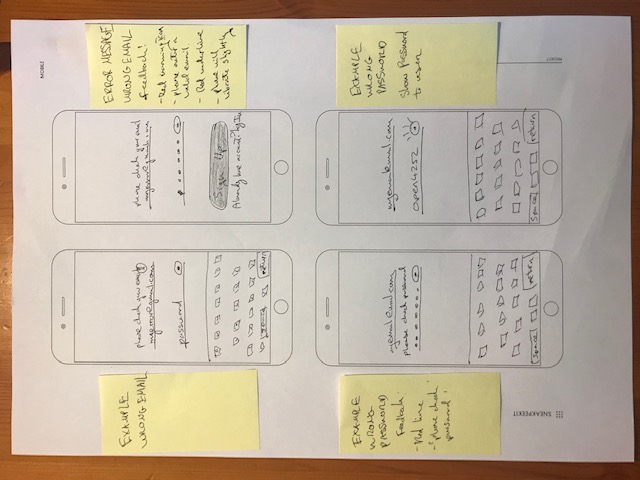 MOBILE
EXAMPLE
WRONG EMAIL
please check your email
myerror@gmail.com
password
return
please check your email
myerror@gmail.com
Sign Up
Already have account? Log In
ERROR MESSAGE
WRONG EMAIL
feedback!
- Red warning icon
- please enter a
valid email.
- Red underline
- phone will
vibrate slightly
EXAMPLE
WRONG
PASSWORD
Feedback
- Red line
- "please check
password"
please check password
space
return
open4252
space
return
EXAMPLE
WRONG
PASSWORD
Show Password
to user
SNEAKPEEKIT
PROJECT